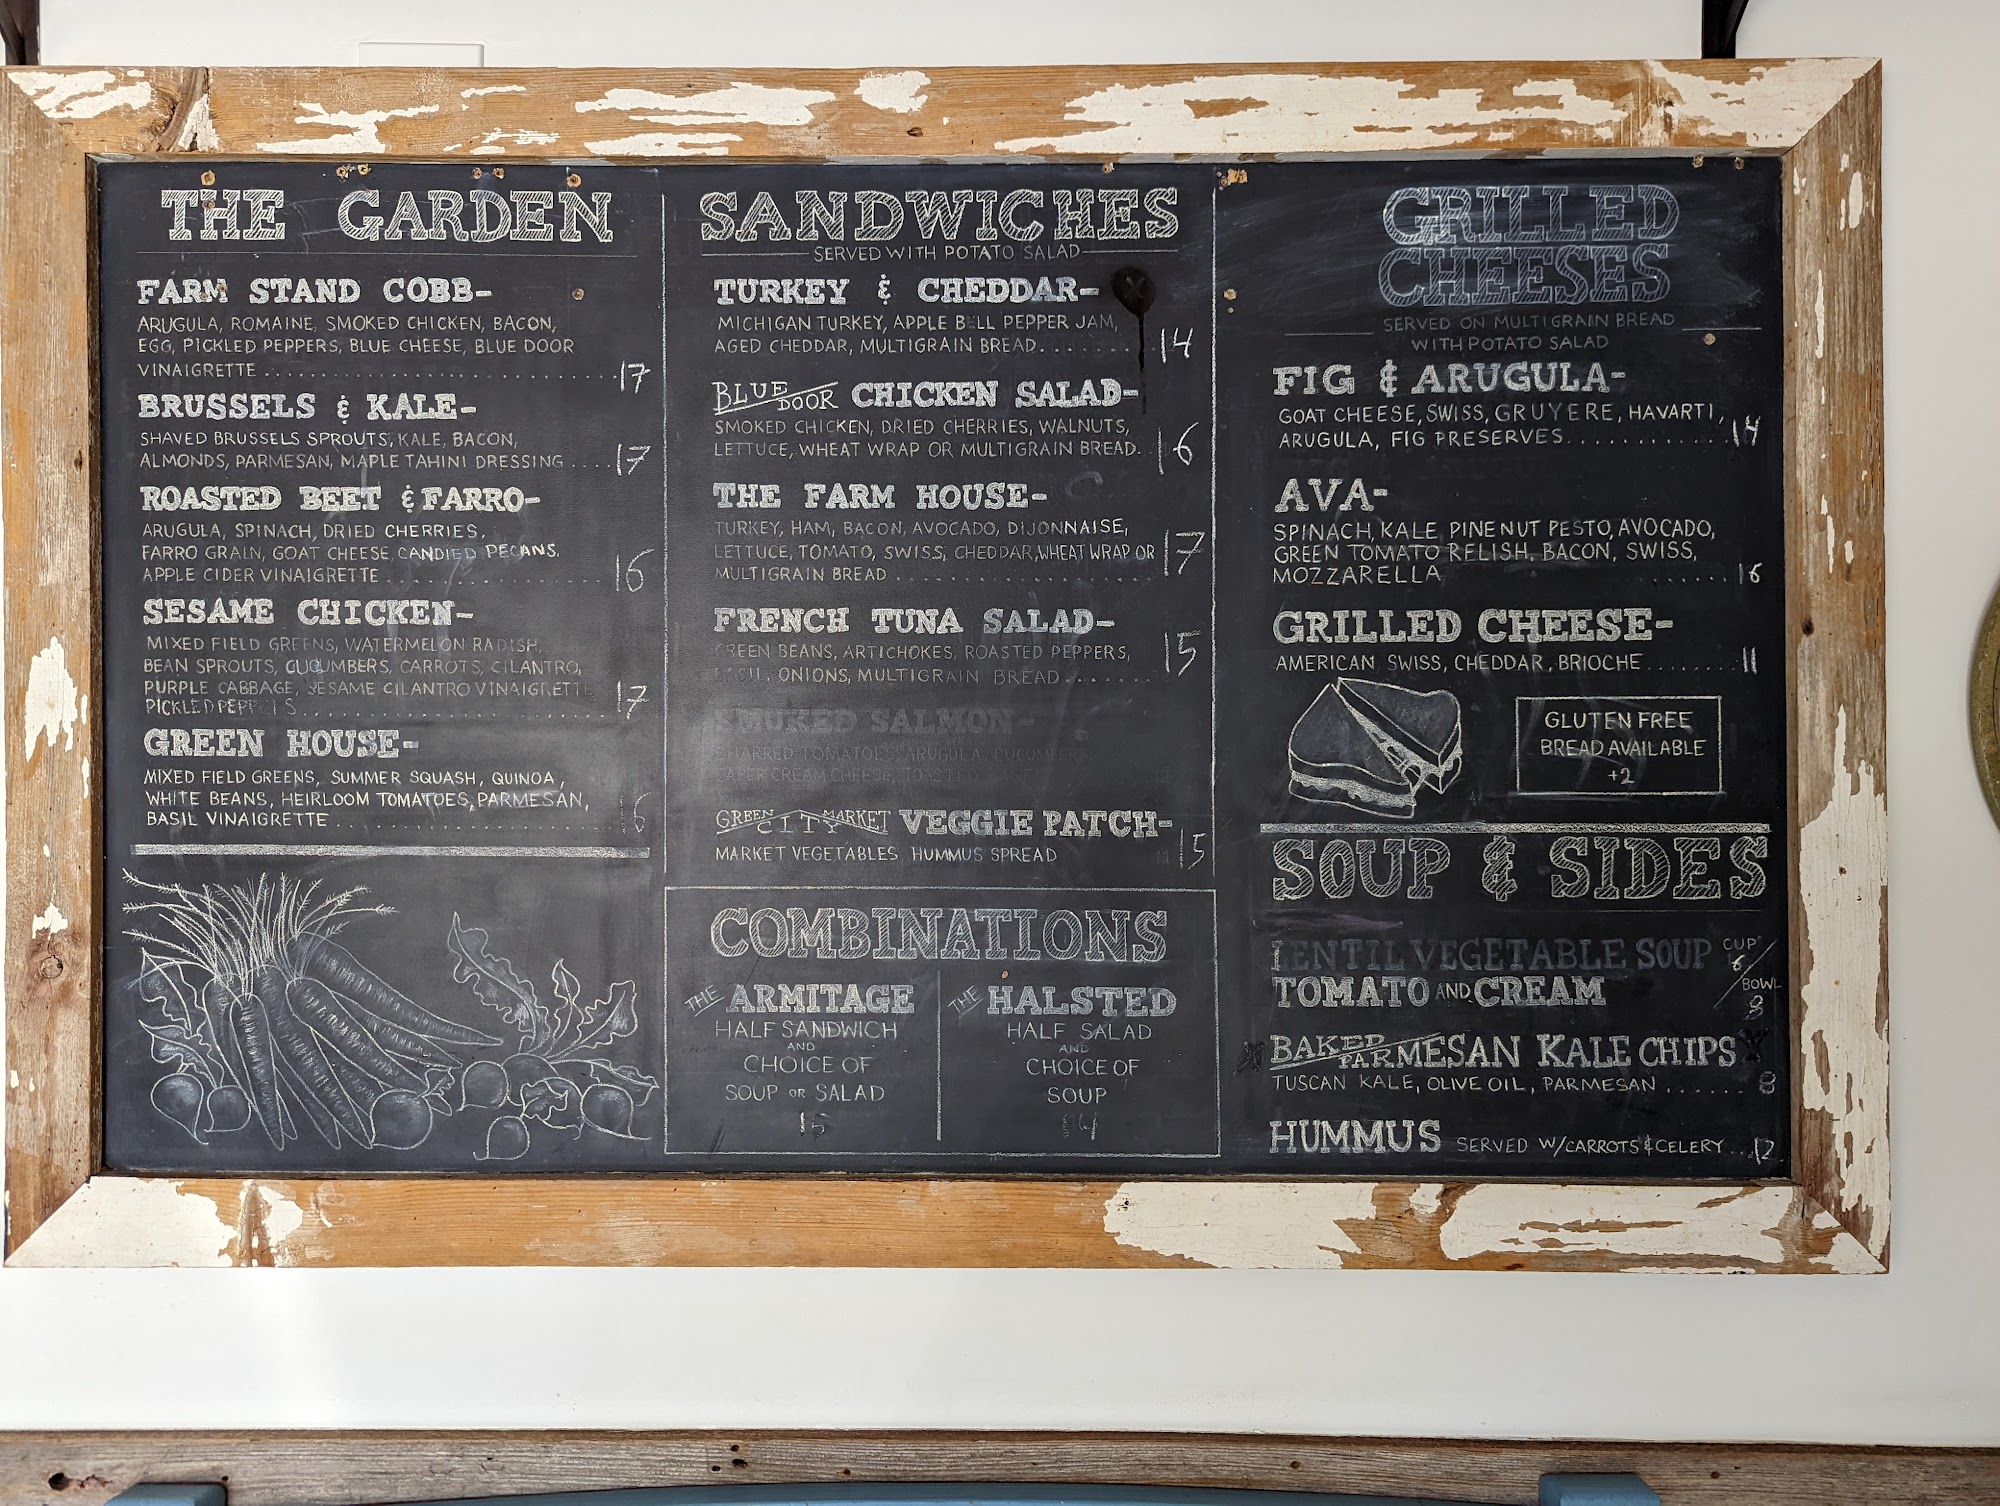 THE GARDEN
FARM STAND COBB-
ARUGULA, ROMAINE, SMOKED CHICKEN, BACON,
EGG, PICKLED PEPPERS, BLUE CHEESE, BLUE DOOR
VINAIGRETTE .......... 17
BRUSSELS & KALE-
SHAVED BRUSSELS SPROUTS, KALE, BACON,
ALMONDS, PARMESAN, MAPLE TAHINI DRESSING .... 17
ROASTED BEET & FARRO-
ARUGULA, SPINACH, DRIED CHERRIES,
FARRO GRAIN, GOAT CHEESE, CANDIED PECANS,
APPLE CIDER VINAIGRETTE .......... 16
SESAME CHICKEN-
MIXED FIELD GREENS, WATERMELON RADISH,
BEAN SPROUTS, CUCUMBERS, CARROTS, CILANTRO,
PURPLE CABBAGE, SESAME CILANTRO VINAIGRETTE
PICKLED PEPPERS .......... 17
GREEN HOUSE-
MIXED FIELD GREENS, SUMMER SQUASH, QUINOA,
WHITE BEANS, HEIRLOOM TOMATOES, PARMESAN,
BASIL VINAIGRETTE .......... 16
SANDWICHES
SERVED WITH POTATO SALAD
TURKEY & CHEDDAR-
MICHIGAN TURKEY, APPLE BELL PEPPER JAM,
AGED CHEDDAR, MULTIGRAIN BREAD .......... 14
BLUE DOOR CHICKEN SALAD-
SMOKED CHICKEN, DRIED CHERRIES, WALNUTS,
LETTUCE, WHEAT WRAP OR MULTIGRAIN BREAD.. 16
THE FARM HOUSE-
TURKEY, HAM, BACON, AVOCADO, DIJONNAISE,
LETTUCE, TOMATO, SWISS, CHEDDAR, WHEAT WRAP OR 17
MULTIGRAIN BREAD ..........
FRENCH TUNA SALAD-
GREEN BEANS, ARTICHOKES, ROASTED PEPPERS, 15
BASIL, ONIONS, MULTIGRAIN BREAD ........
SMOKED SALMON-
CHARRED TOMATOES, ARUGULA, CUCUMBERS,
CAPER CREAM CHEESE, TOASTED
GREEN CITY MARKET VEGGIE PATCH-
MARKET VEGETABLES, HUMMUS SPREAD 15
COMBINATIONS
THE ARMITAGE
HALF SANDWICH
AND
CHOICE OF
SOUP OR SALAD
15
THE HALSTED
HALF SALAD
AND
CHOICE OF
SOUP
14
GRILLED
CHEESES
SERVED ON MULTIGRAIN BREAD
WITH POTATO SALAD
FIG & ARUGULA-
GOAT CHEESE, SWISS, GRUYERE, HAVARTI,
ARUGULA, FIG PRESERVES .......... 14
AVA-
SPINACH, KALE, PINENUT PESTO, AVOCADO,
GREEN TOMATO RELISH, BACON, SWISS,
MOZZARELLA ....... 16
GRILLED CHEESE-
AMERICAN, SWISS, CHEDDAR, BRIOCHE ....... 11
GLUTEN FREE
BREAD AVAILABLE
+2
SOUP & SIDES
LENTIL VEGETABLE SOUP CUP 6
TOMATO AND CREAM BOWL 8
BAKED PARMESAN KALE CHIPS
TUSCAN KALE, OLIVE OIL, PARMESAN ...... 8
HUMMUS SERVED W/CARROTS & CELERY .. 12